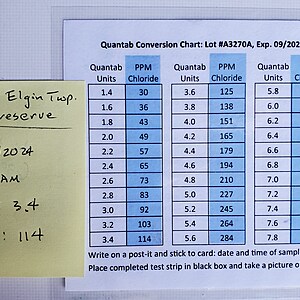 Quantab Conversion Chart: Lot #A3270A, Exp. 09/202
Quantab Units PPM Chloride Quantab Units PPM Chloride Quantab Units
1.4 30 3.6 125 5.8
1.6 36 3.8 138 6.0
1.8 43 4.0 151 6.2
2.0 49 4.2 165 6.4
2.2 57 4.4 179 6.6
2.4 65 4.6 194 6.8
2.6 73 4.8 210 7.0
2.8 83 5.0 227 7.2
3.0 92 5.2 245 7.4
3.2 103 5.4 264 7.6
3.4 114 5.6 284 7.8
Write on a post-it and stick to card: date and time of sample
Place completed test strip in black box and take a picture o
Elgin Twp.
reserve
2024
AM
3.4
: 114